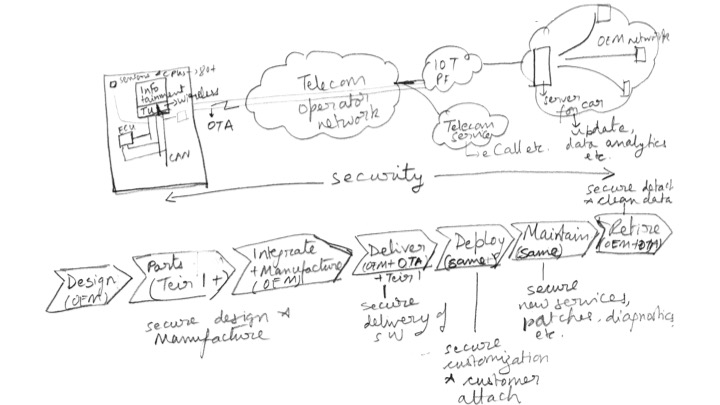 sensors
Info
tainment
wireless
TU
ECU
CAN
OTA
Telecom
operator
network
IOT
PF
Telecom
service
eCall etc.
OEM network
server
for car
update,
data analytics
etc.
security
secure detach
& clean data
Design
(OEM)
Parts
(Teir 1 +)
Integrate
+ Manufacture
(OEM)
Deliver
(OEM + OTA
+ Teir 1
Deploy
(same +)
Maintain
(same)
Retire
(OEM + OTA)
secure design &
Manufacture
secure
delivery of
SW
secure
customization
& customer
attach
secure
new services,
patches, diagnostics
etc.